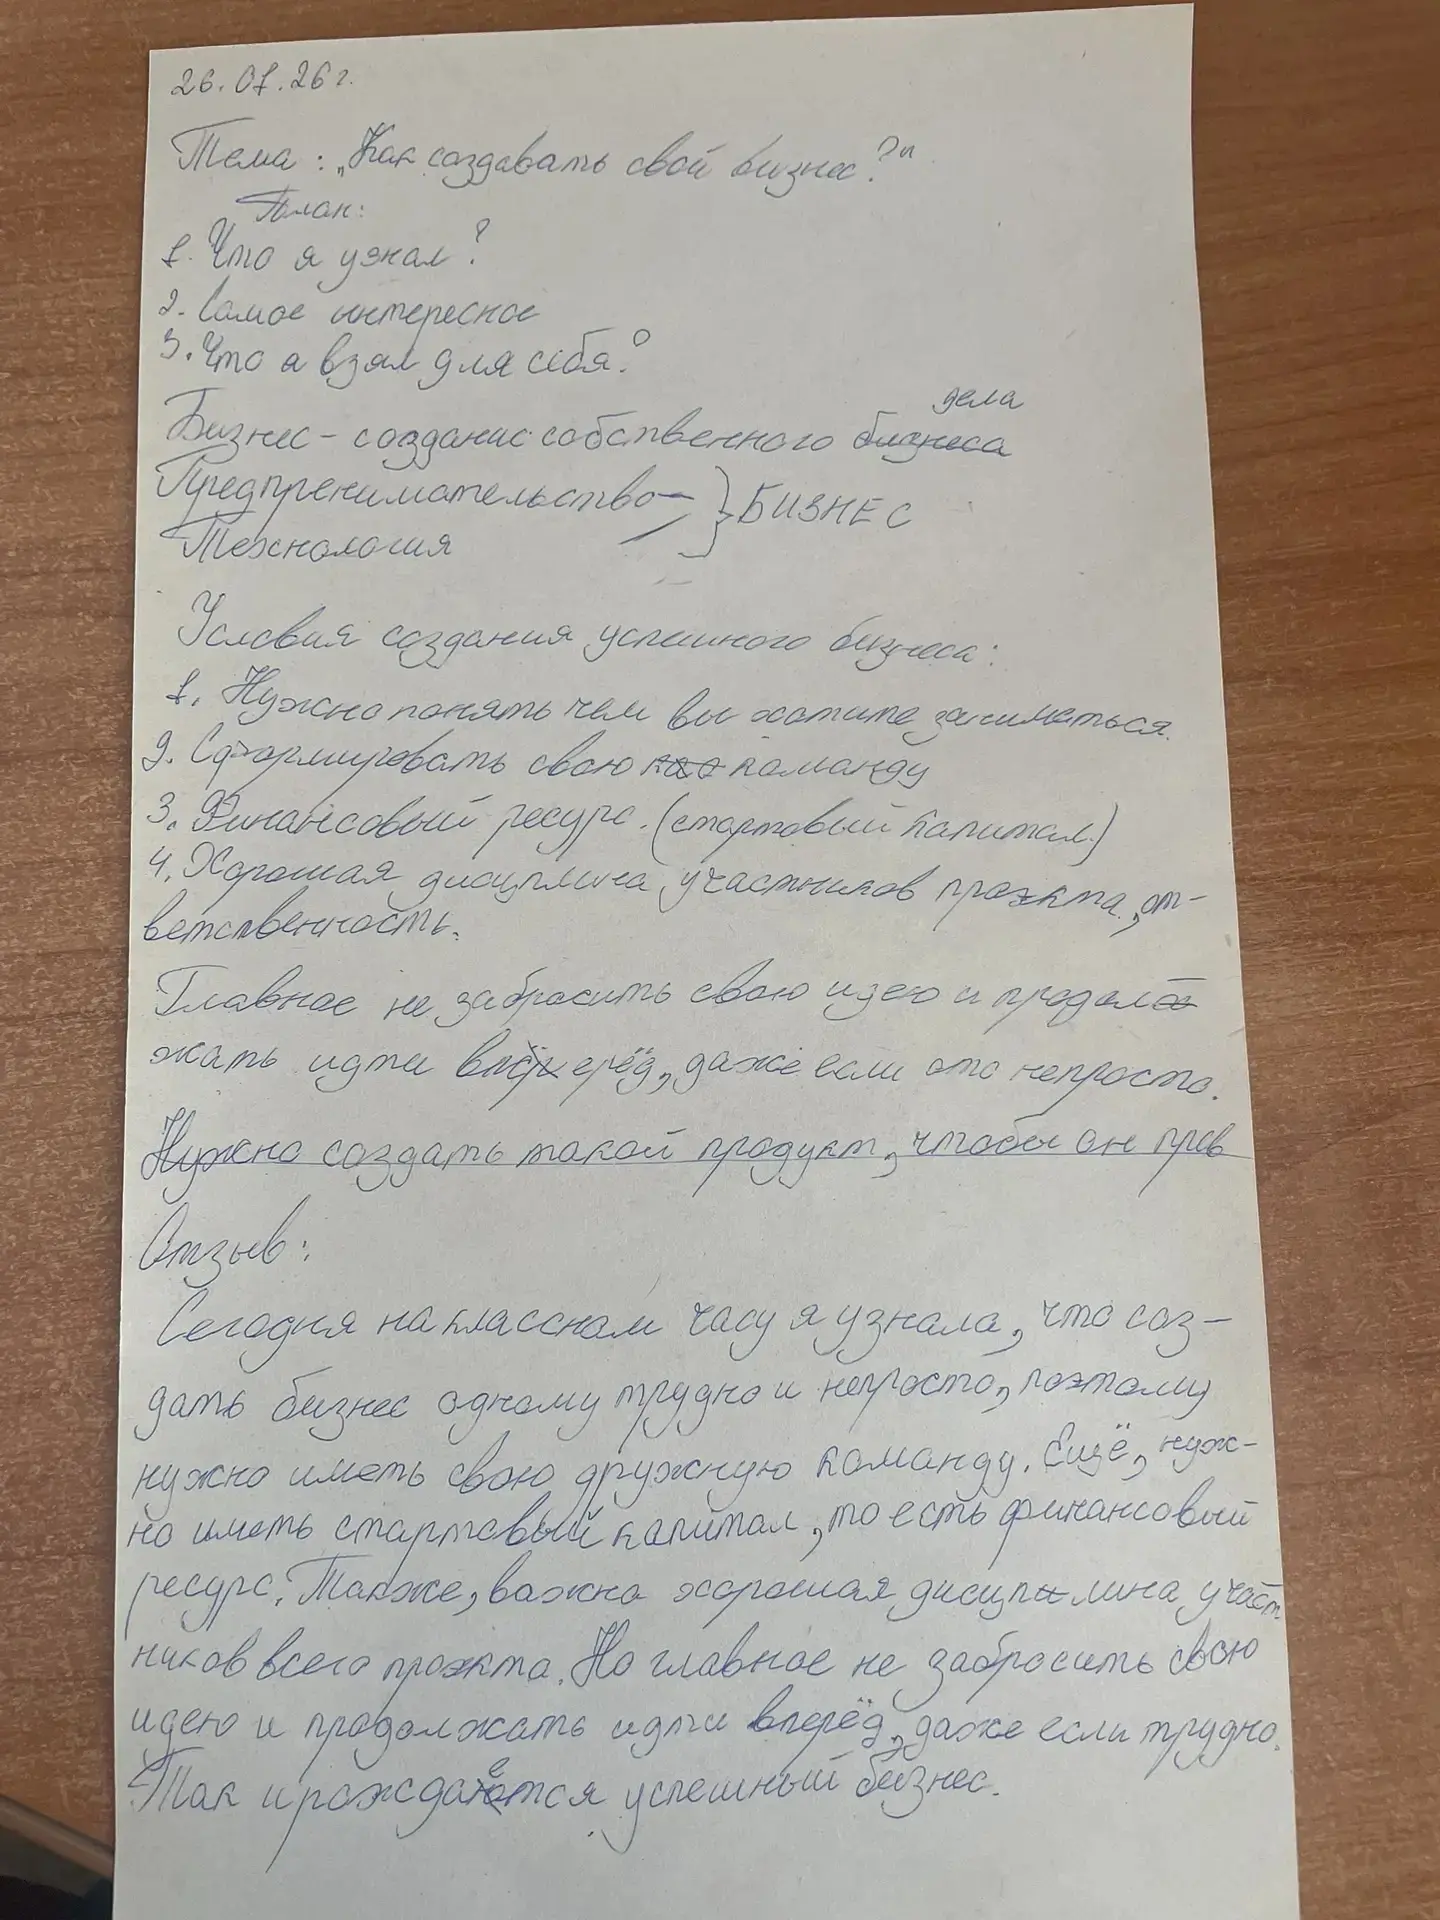 26.01.26 г.
Тема: „Как создавать свой бизнес?"
План:
1. Что я узнал?
2. Самое интересное
3. Что я взял для себя?
дела
Бизнес - создание собственного бизнеса
Предпренимательство - } БИЗНЕС
Технология
Условия создания успешного бизнеса:
1. Нужно понять чем вы хотите заниматься.
2. Сформировать свою команду
3. Финансовый ресурс. (стартовый капитал)
4. Хорошая дисциплина участников проэкта, от-
ветственность.
Главное не забросить свою идею и продол
жать идти вперёд, даже если это непросто.
Нужно создать такой продукт, чтобы он прев
Отзыв:
Сегодня на классном часу я узнала, что соз-
дать бизнес одному трудно и непросто, поэтому
нужно иметь свою дружную команду. Ещё, нуж-
но иметь стартовый капитал, то есть финансовый
ресурс. Также, важна хорошая дисциплина участ
ников всего проэкта. Но главное не забросить свою
идею и продолжать идти вперёд, даже если трудно.
Так и рождается успешный бизнес.